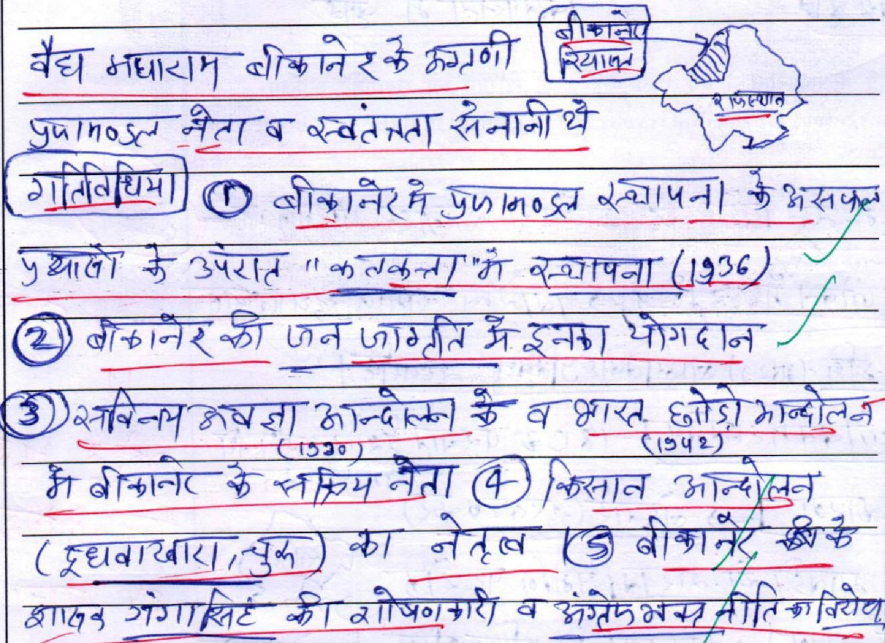 वैद्य मघाराम बीकानेर के अग्रणी
बीकानेर
रियासत
राजस्थान
प्रजामण्डल नेता व स्वतंत्रता सेनानी थे
गतिविधिया ① बीकानेर मे प्रजामण्डल स्थापना के असफल
प्रयासो के उपरांत "कलकत्ता" में स्थापना (1936)
② बीकानेर की जन जागृति में इनका योगदान
③ सविनय अवज्ञा आन्दोलन के व भारत छोडो आन्दोलन
(1930) (1942)
में बीकानेर के सक्रिय नेता ④ किसान आन्दोलन
(दूधवाखारा, चुरू) का नेतृत्व ⑤ बीकानेर के
शासक गंगासिंह की शोषणकारी व अंग्रेजभक्त नीति का विरोध